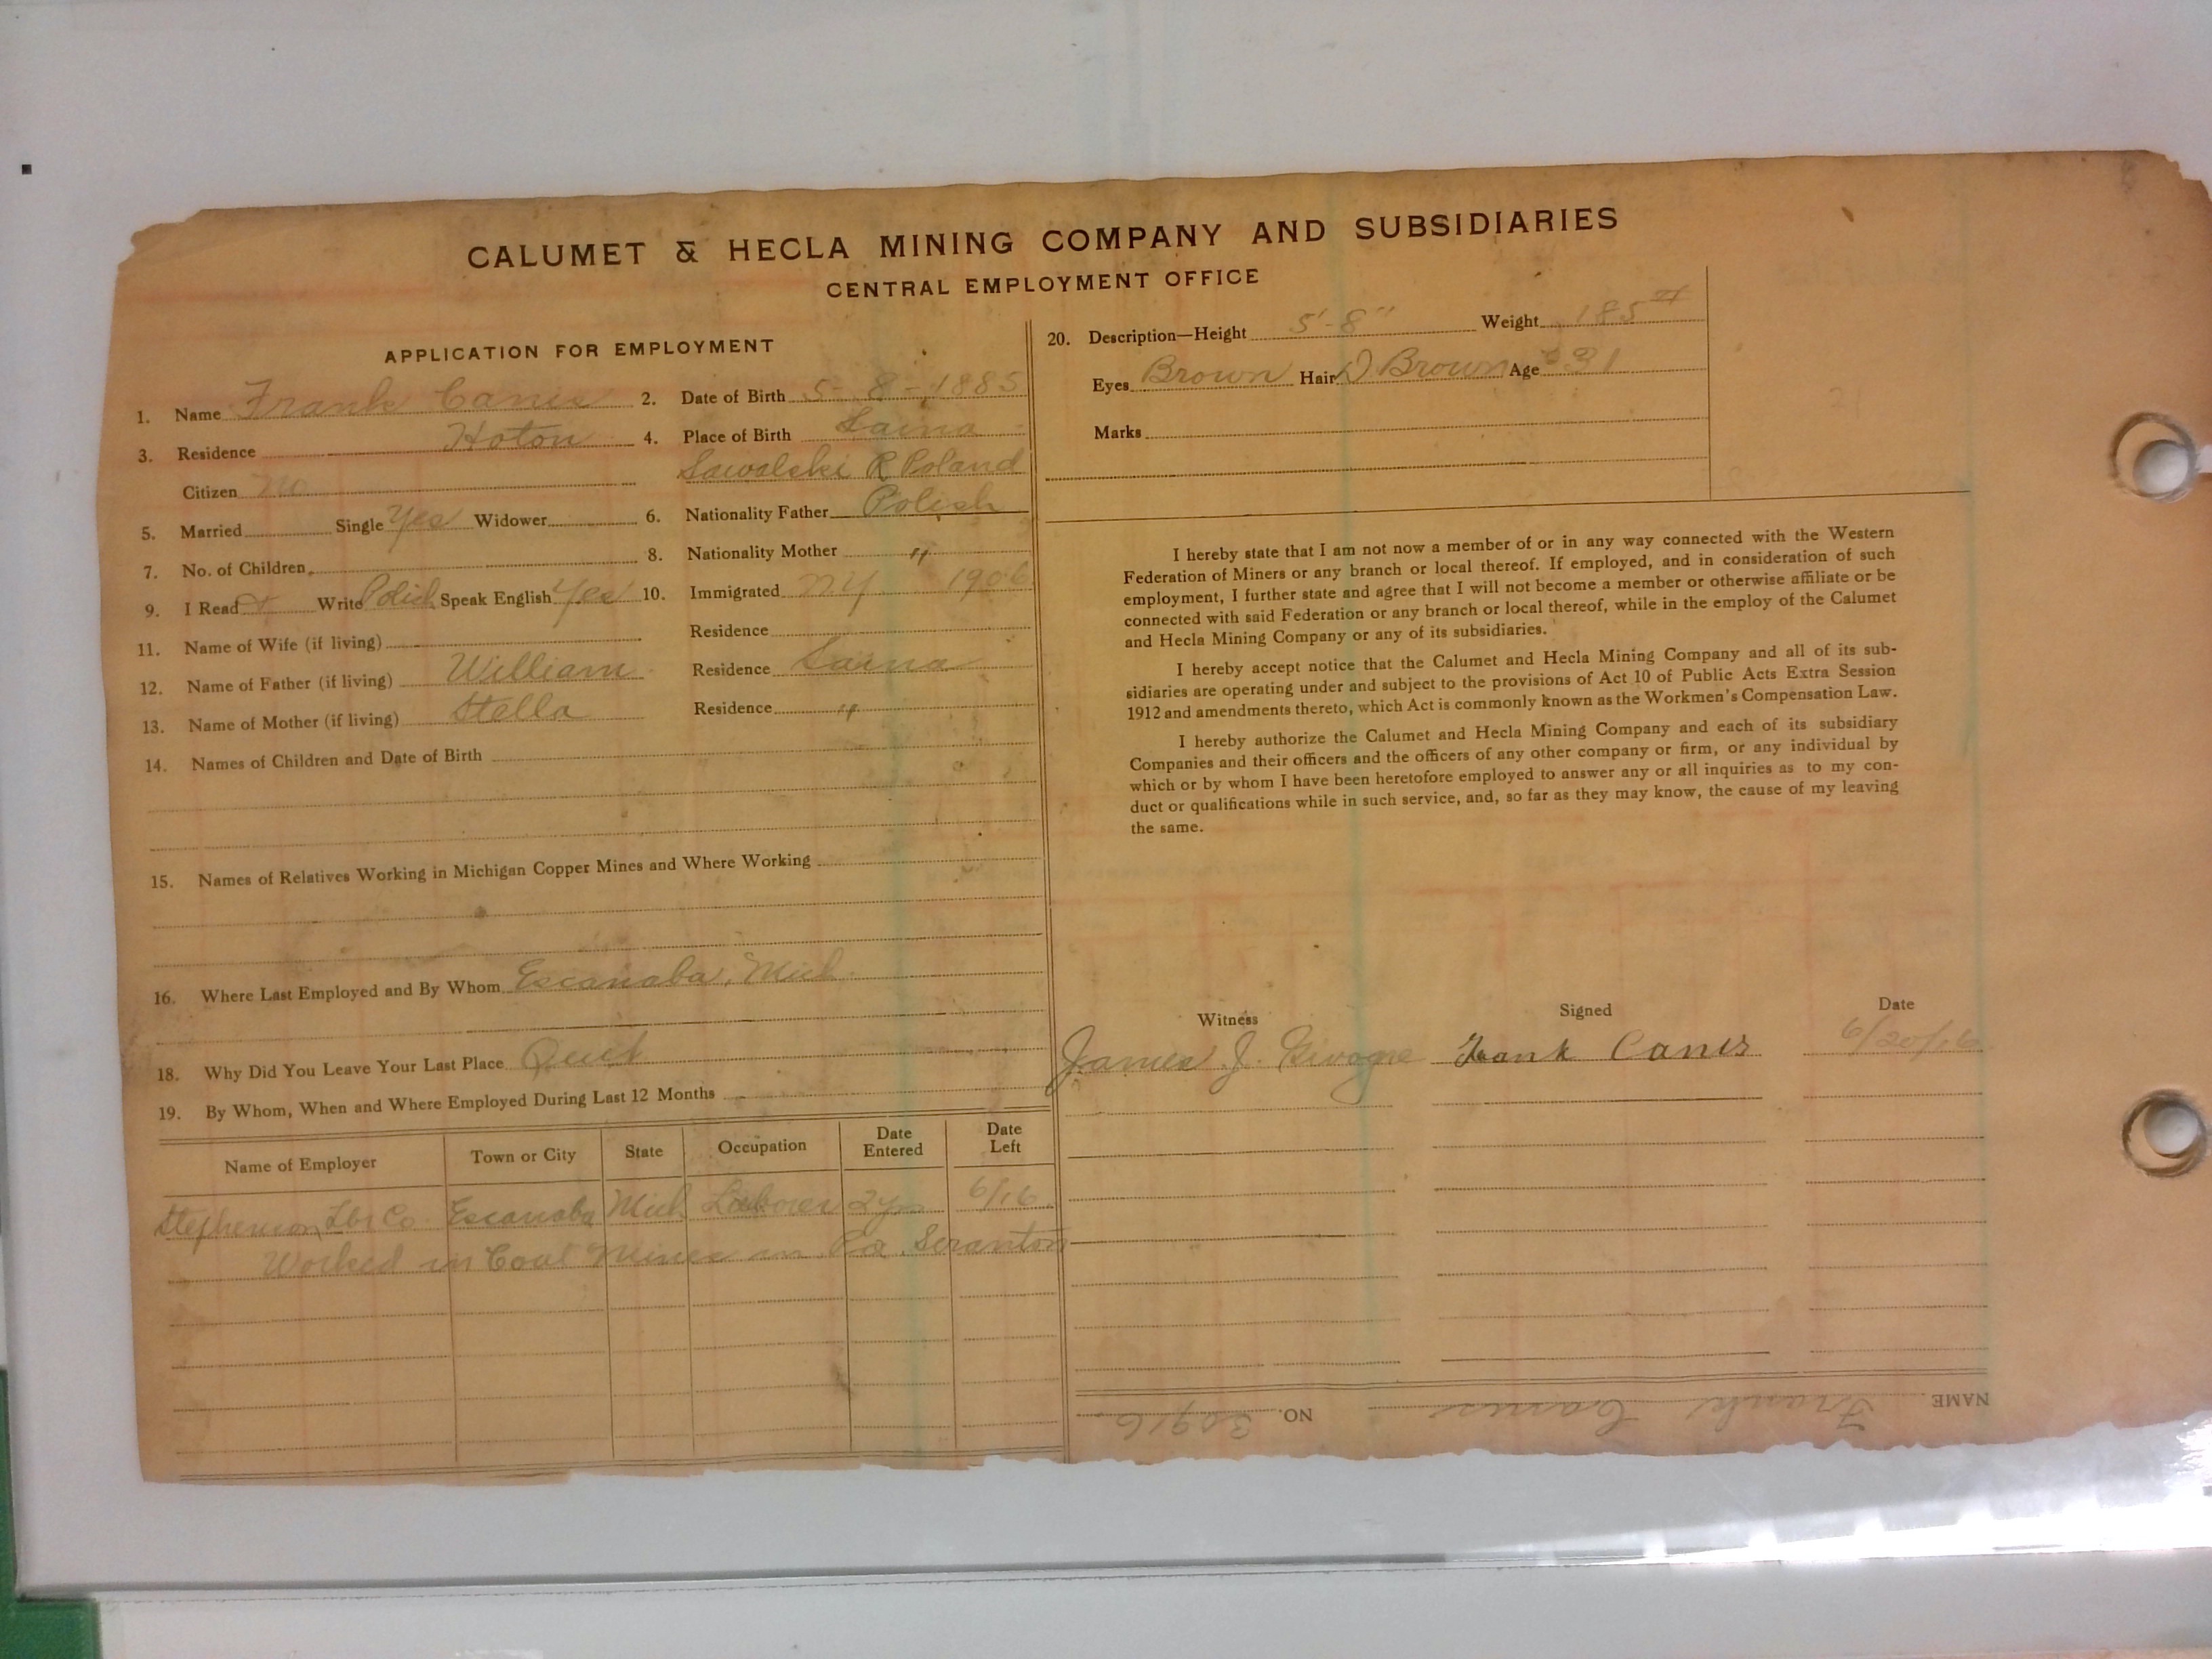 CALUMET & HECLA MINING COMPANY AND SUBSIDIARIES
CENTRAL EMPLOYMENT OFFICE
APPLICATION FOR EMPLOYMENT
1. Name Frank Canis 2. Date of Birth 5-8-1885
3. Residence Hoton 4. Place of Birth Saina
Citizen no Sawalski R Poland
5. Married Single Yes Widower 6. Nationality Father Polish
7. No. of Children 8. Nationality Mother "
9. I Read & Write Polish Speak English Yes 10. Immigrated N.Y. 1906
11. Name of Wife (if living) Residence
12. Name of Father (if living) William Residence Saina
13. Name of Mother (if living) Stella Residence "
14. Names of Children and Date of Birth
15. Names of Relatives Working in Michigan Copper Mines and Where Working
16. Where Last Employed and By Whom Escanaba, Mich
18. Why Did You Leave Your Last Place Quit
19. By Whom, When and Where Employed During Last 12 Months
Name of Employer Town or City State Occupation Date Entered Date Left
Stephenson Lbr Co. Escanaba Mich Laborer 2 yrs 6/16
Worked in Coal Mines in Pa. Scranton
20. Description—Height 5'-8" Weight 185#
Eyes Brown Hair D Brown Age 31
Marks
I hereby state that I am not now a member of or in any way connected with the Western
Federation of Miners or any branch or local thereof. If employed, and in consideration of such
employment, I further state and agree that I will not become a member or otherwise affiliate or be
connected with said Federation or any branch or local thereof, while in the employ of the Calumet
and Hecla Mining Company or any of its subsidiaries.
I hereby accept notice that the Calumet and Hecla Mining Company and all of its sub-
sidiaries are operating under and subject to the provisions of Act 10 of Public Acts Extra Session
1912 and amendments thereto, which Act is commonly known as the Workmen's Compensation Law.
I hereby authorize the Calumet and Hecla Mining Company and each of its subsidiary
Companies and their officers and the officers of any other company or firm, or any individual by
which or by whom I have been heretofore employed to answer any or all inquiries as to my con-
duct or qualifications while in such service, and, so far as they may know, the cause of my leaving
the same.
Witness Signed Date
James J. Frank Canis 6/20/16
NAME Frank Canis NO. 30916